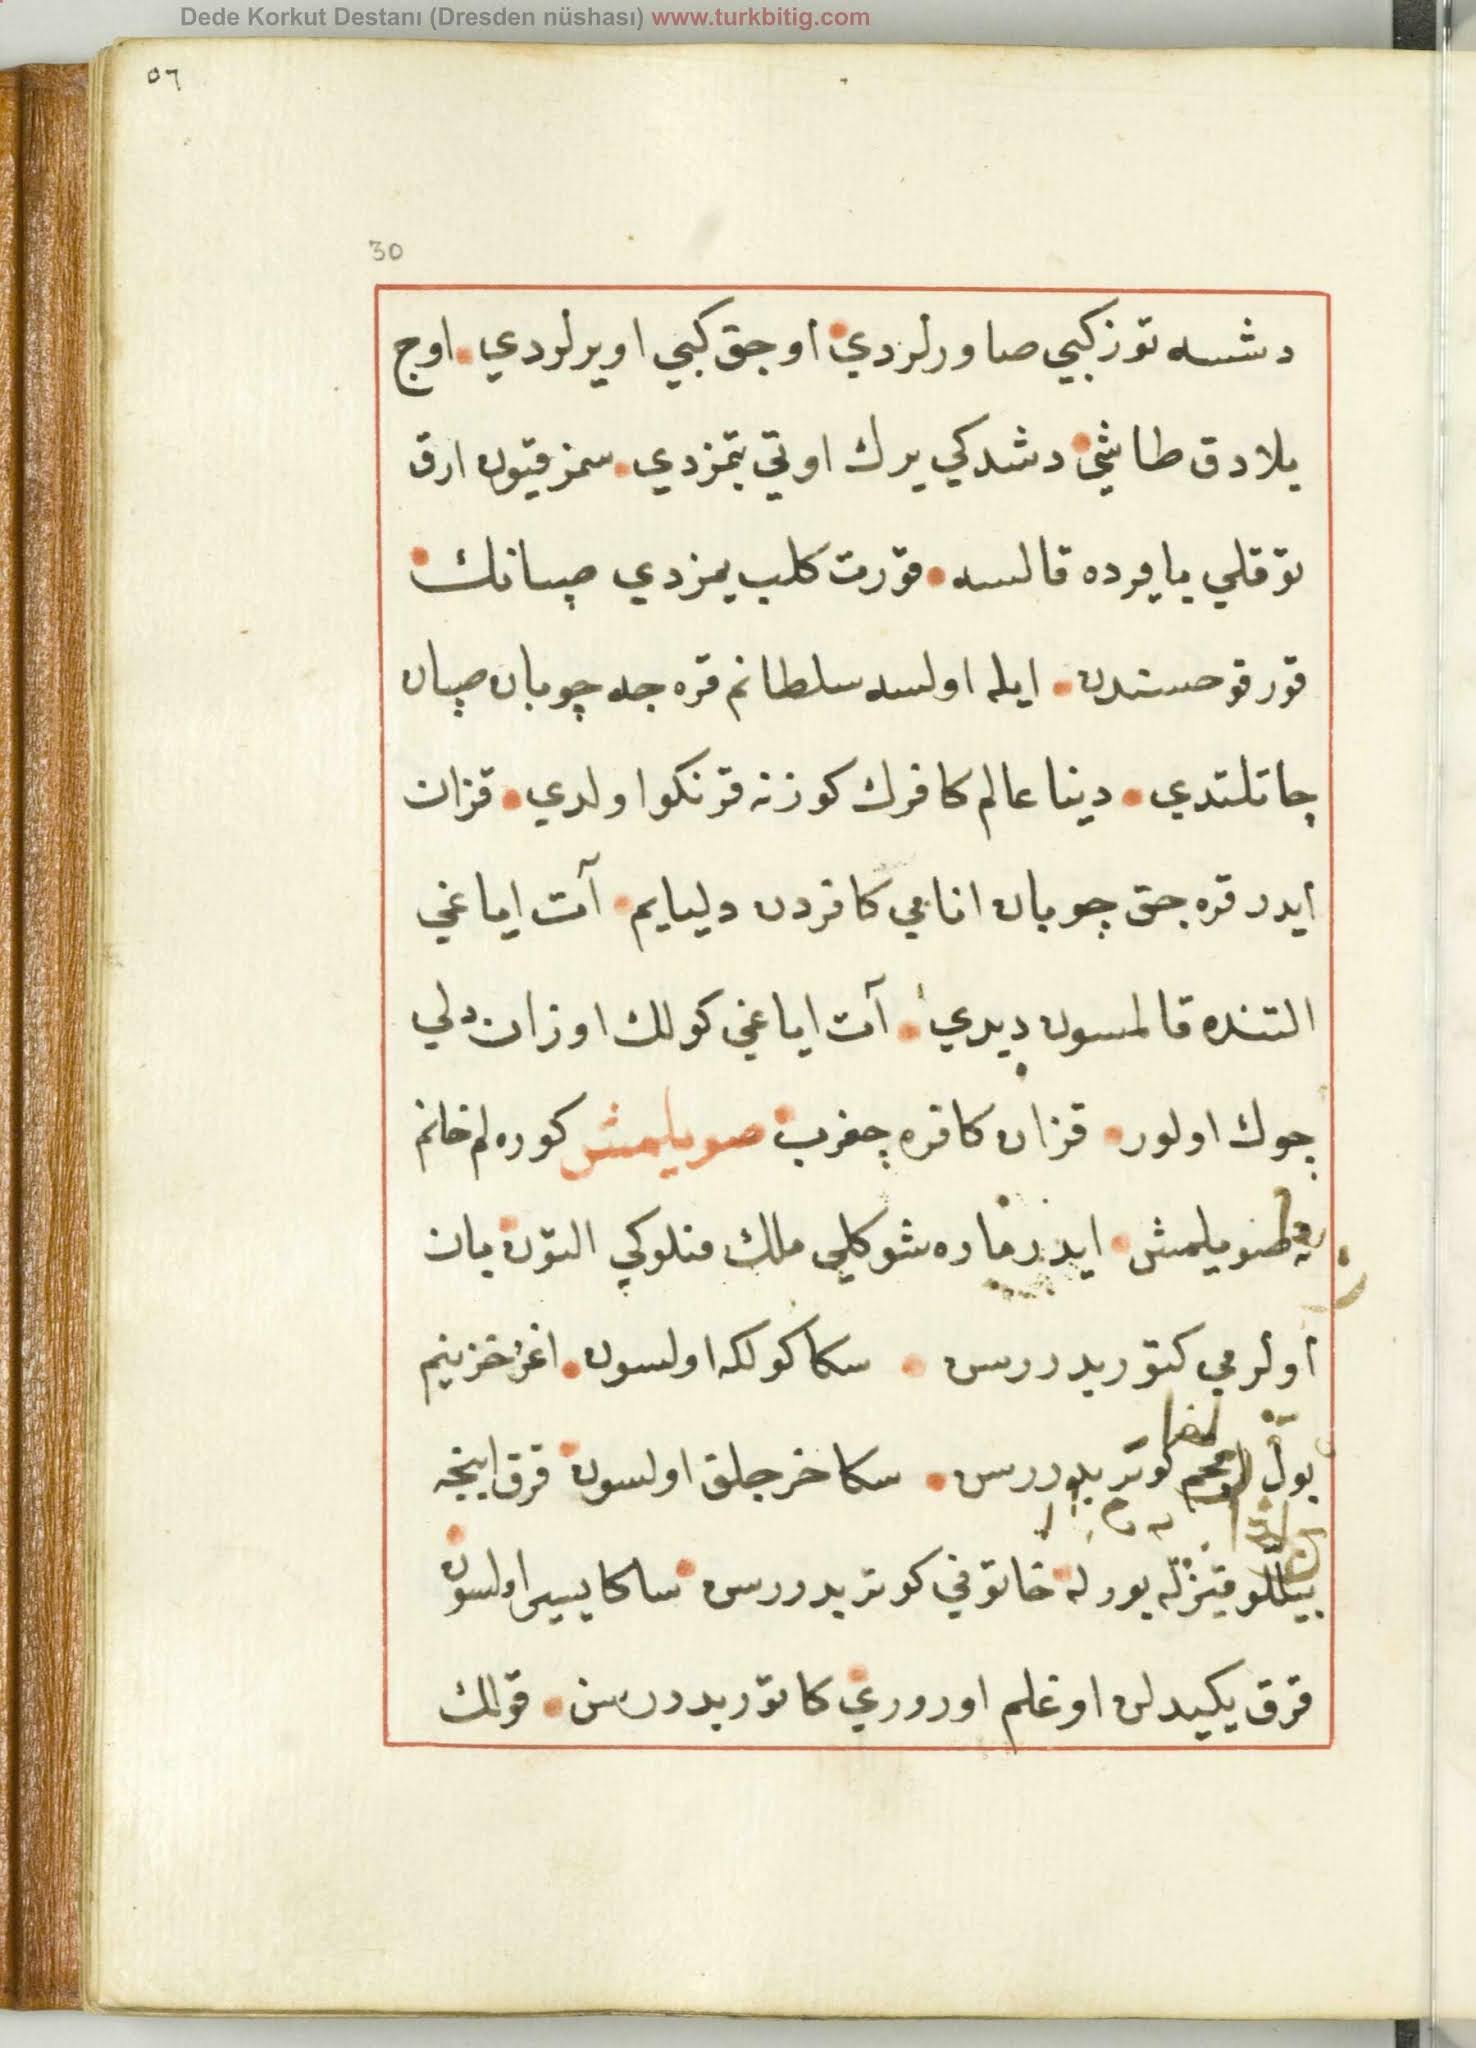 Dede Korkut Destanı (Dresden nüshası) www.turkbitig.com
٥٦
30
دشسه توز كبي صاورلردي اوجق كبي اويرلردي اوج
يلادق طاشي دشدكي يرك اوتي بتمزدي سمز قيون ارق
توقلي بايرده قالسه قورت كلب يمزدي صپانك
قورقوسندن ايله اولسه سلطانم قره جه چوبان صپان
چاتلتدي دينا عالم كافرك كوزنه قرنكو اولدي قزان
ايدر قره جق چوبان انامي كافردن دليايم آت اياغي
التنده قالمسون ديدي آت اياغي كولك اوزان دلي
چوك اولور قزان كافره چغرب صويلمش كوره لم خانم
نه صويلمش ايدر ماره شوكلي ملك دنلوكي التون بان
أولرمي كتوربدررسن سكا كولكه اولسون اغر خزينم
بول كوتربدررسن سكا خرجلق اولسون قرق اينجه
بيللو قيزله بورله خاتوني كوتربدررسن ساكا يسير اولسون
قرق يكيدلن اوغلم اوروزي كاتوربدررسن قولك